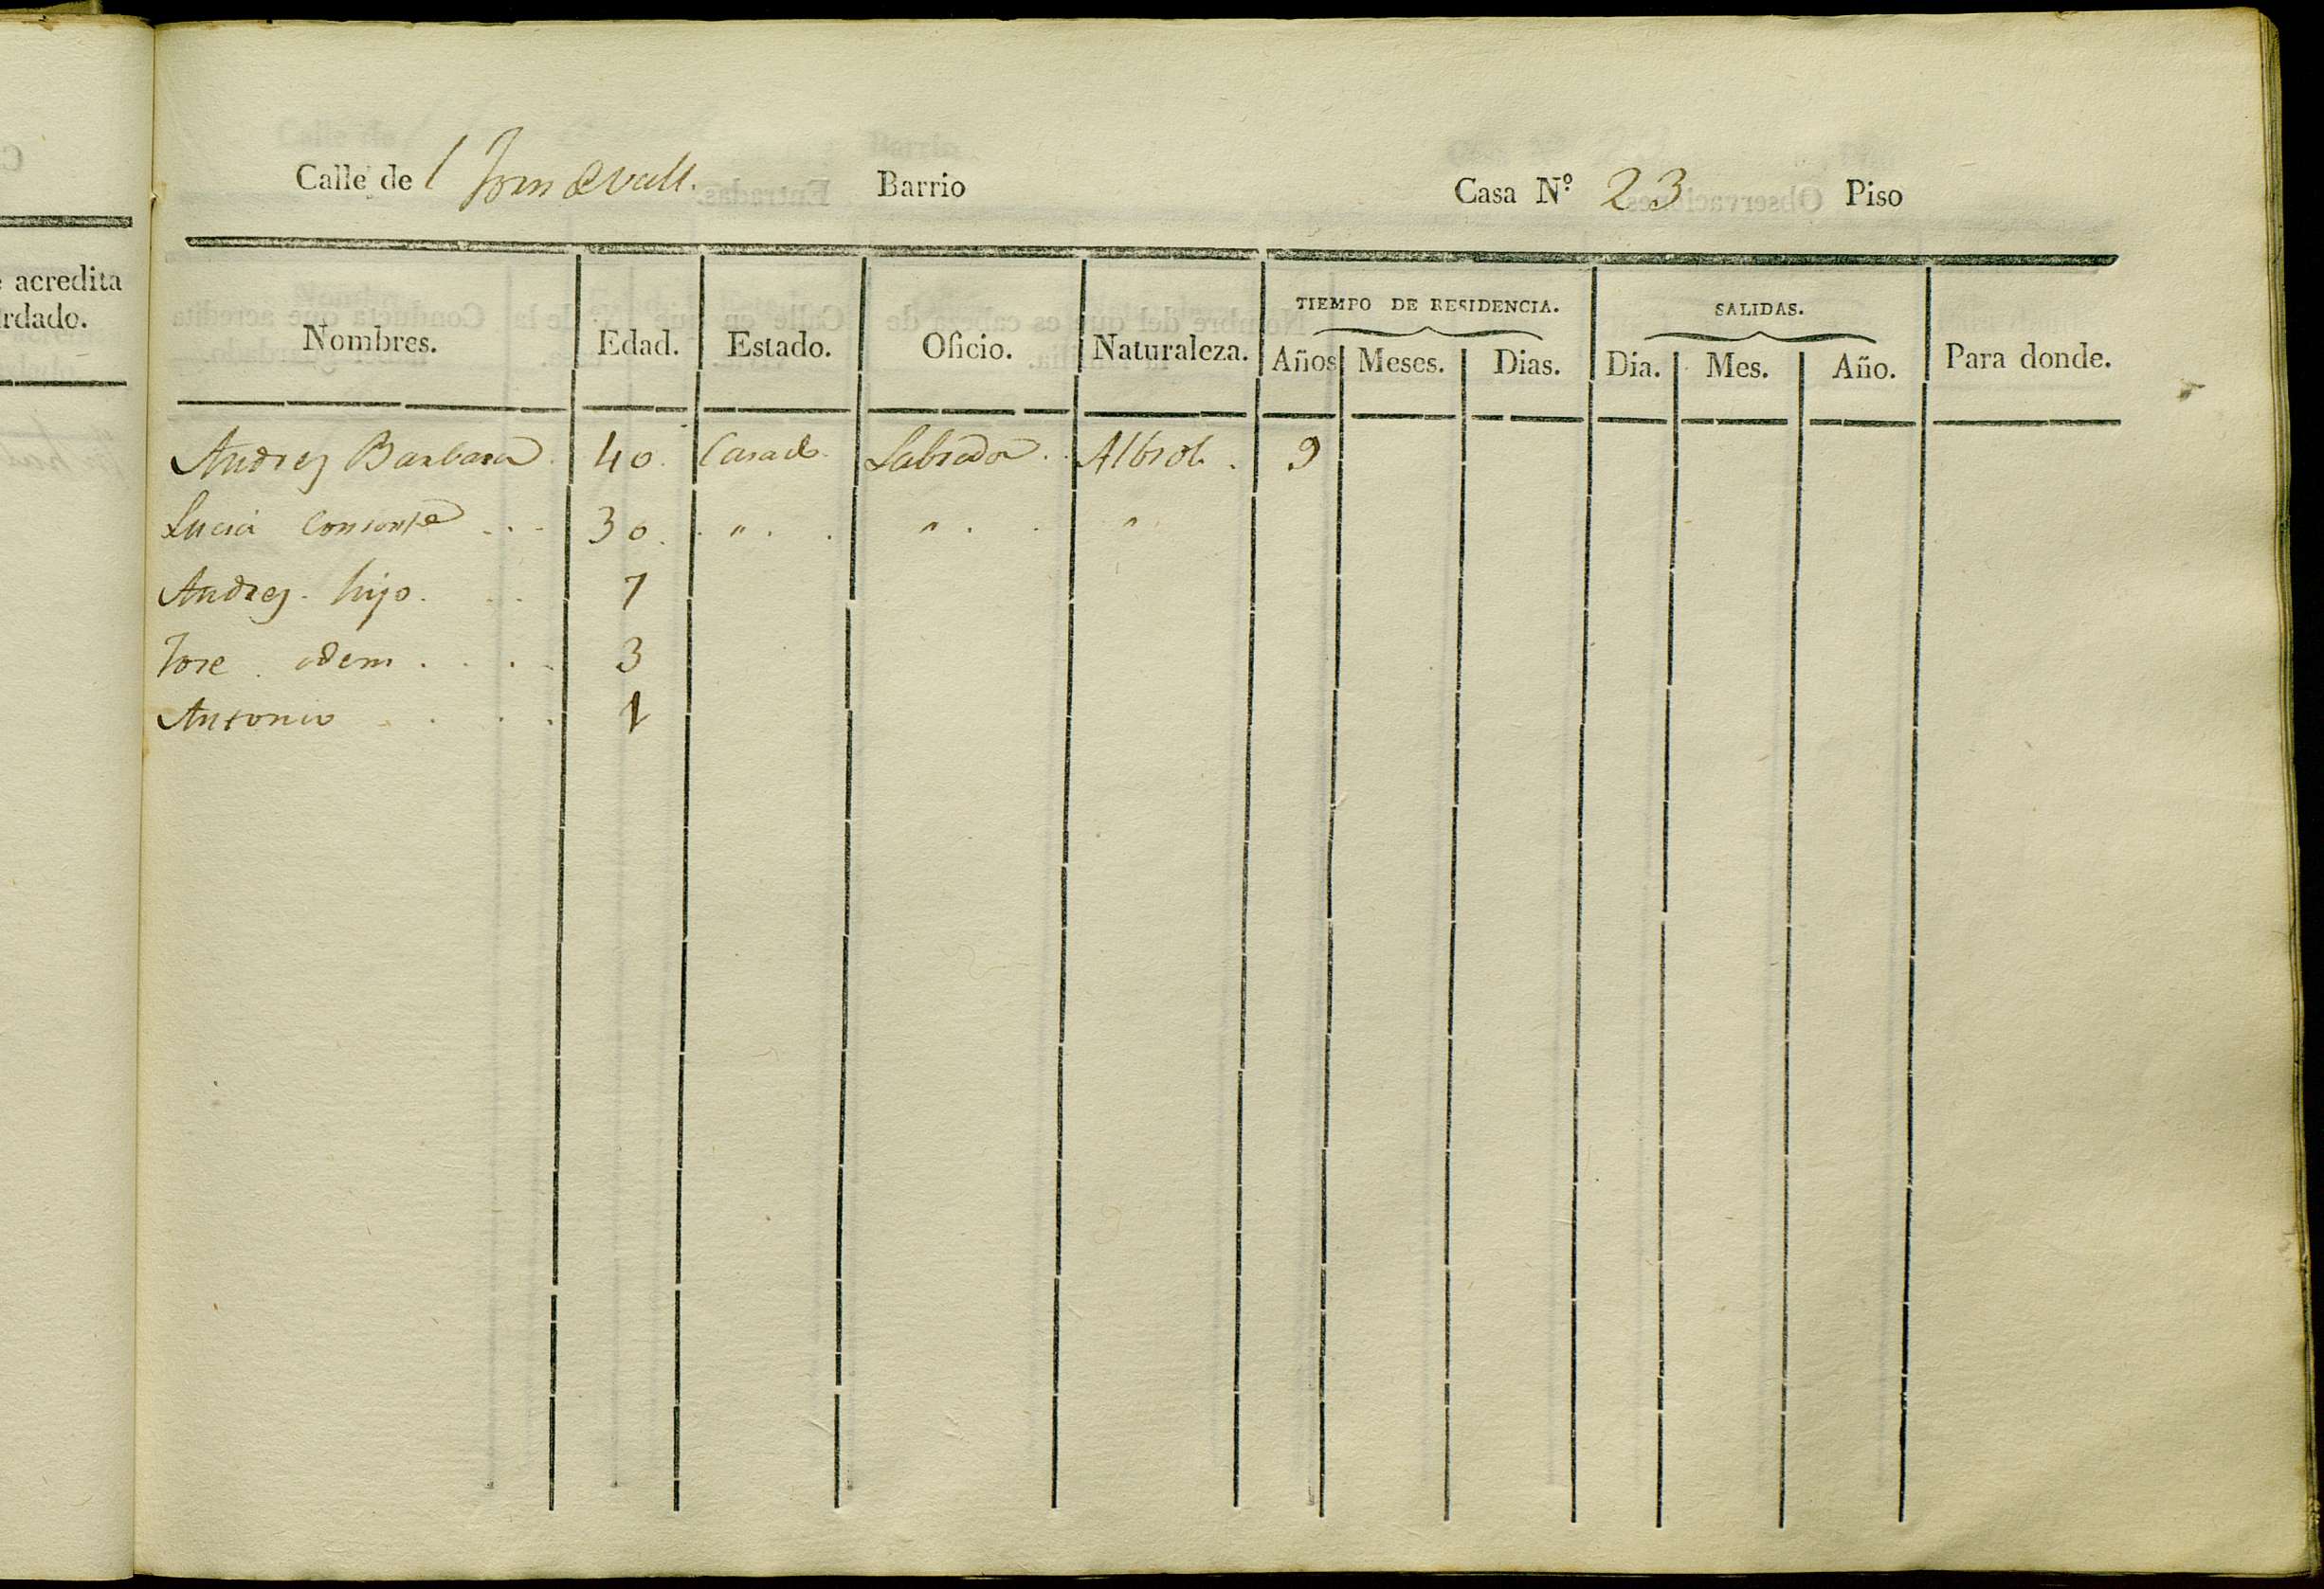 acredita
rdado.
Calle de l Forn de vall. Barrio Casa N.º 23 Piso
Nombres. Edad. Estado. Oficio. Naturaleza. TIEMPO DE RESIDENCIA. SALIDAS. Para donde.
Años Meses. Dias. Dia. Mes. Año.
Andres Barbara. 40. Casado. Labrador. 9
Lucia Consorte 30. " " "
Andres hijo. 7
Jose idem 3
Antonio 1